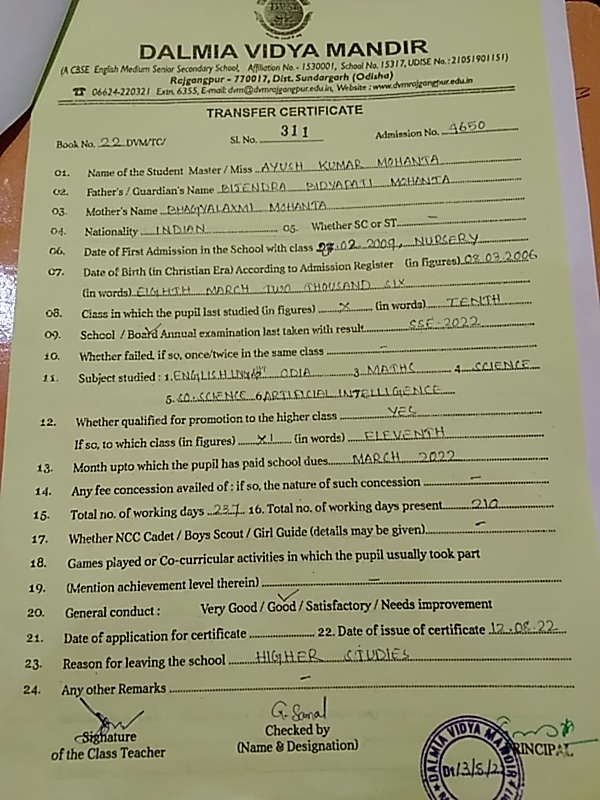 DALMIA VIDYA MANDIR
(A CBSE English Medium Senior Secondary School, Affiliation No. - 1530001, School No. 15317, UDISE No. : 21051901151)
Rajgangpur - 770017, Dist. Sundargarh (Odisha)
☎ 06624-220321 Extn. 6355, E-mail: dvm@dvmrajgangpur.edu.in, Website : www.dvmrajgangpur.edu.in
TRANSFER CERTIFICATE
Book No. 22 DVM/TC/ Sl. No. 311 Admission No. 4650
01. Name of the Student Master / Miss AYUSH KUMAR MOHANTA
02. Father's / Guardian's Name BIJENDRA BIDYAPATI MOHANTA
03. Mother's Name BHAGYALAXMI MOHANTA
04. Nationality INDIAN 05. Whether SC or ST —
06. Date of First Admission in the School with class .02.2009, NURSERY
07. Date of Birth (in Christian Era) According to Admission Register (in figures) 08.03.2006
(in words) EIGHTH MARCH TWO THOUSAND SIX
08. Class in which the pupil last studied (in figures) X (in words) TENTH
09. School / Board Annual examination last taken with result SSE-2022
10. Whether failed, if so, once/twice in the same class —
11. Subject studied : 1. ENGLISH 2. ODIA 3. MATHS 4. SCIENCE
5. SO.SCIENCE 6. ARTIFICIAL INTELLIGENCE
12. Whether qualified for promotion to the higher class YES
If so, to which class (in figures) XI (in words) ELEVENTH
13. Month upto which the pupil has paid school dues MARCH 2022
14. Any fee concession availed of : if so, the nature of such concession —
15. Total no. of working days 237 16. Total no. of working days present 210
17. Whether NCC Cadet / Boys Scout / Girl Guide (details may be given) —
18. Games played or Co-curricular activities in which the pupil usually took part
19. (Mention achievement level therein) —
20. General conduct : Very Good / Good / Satisfactory / Needs improvement
21. Date of application for certificate 22. Date of issue of certificate 12.08.22
23. Reason for leaving the school HIGHER STUDIES
24. Any other Remarks —
Signature
of the Class Teacher
G. Samal
Checked by
(Name & Designation)
PRINCIPAL
DALMIA VIDYA MANDIR